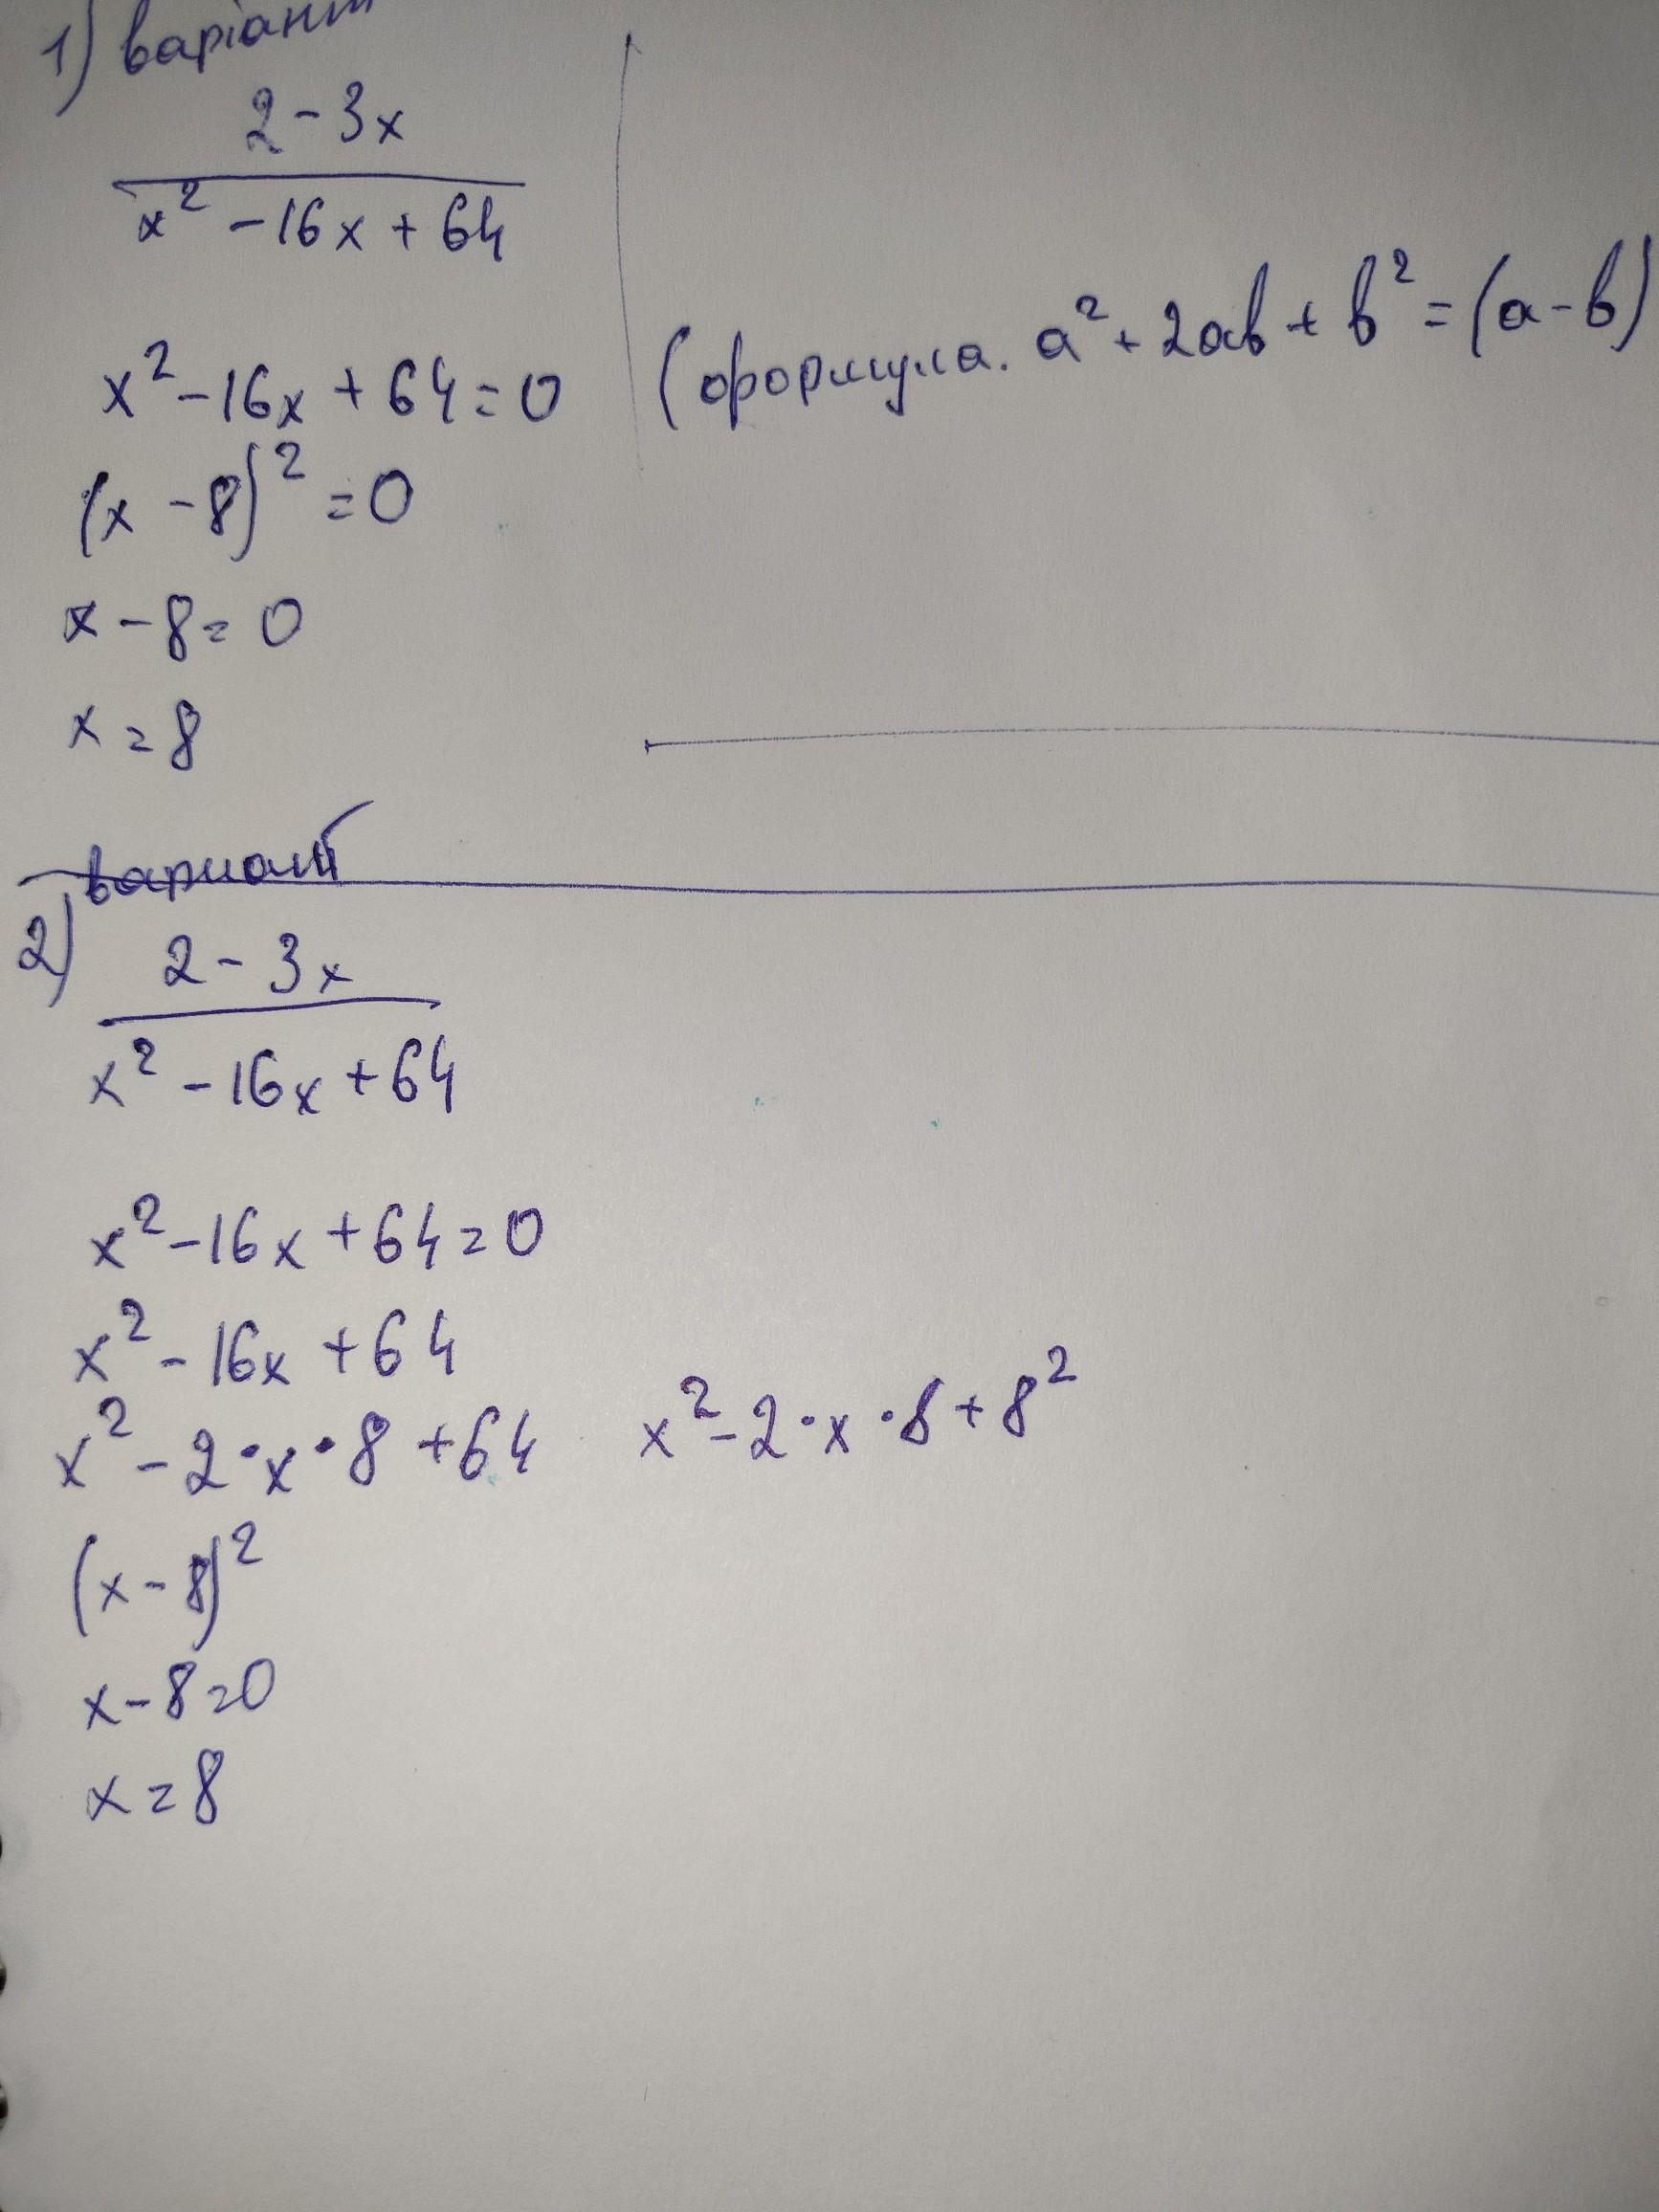 1) варіант
2 - 3x
x² - 16x + 64
x² - 16x + 64 = 0 (формула. a² + 2ab + b² = (a - b)
(x - 8)² = 0
x - 8 = 0
x = 8
вариант
2) 2 - 3x
x² - 16x + 64
x² - 16x + 64 = 0
x² - 16x + 64
x² - 2·x·8 + 64 x² - 2·x·8 + 8²
(x - 8)²
x - 8 = 0
x = 8